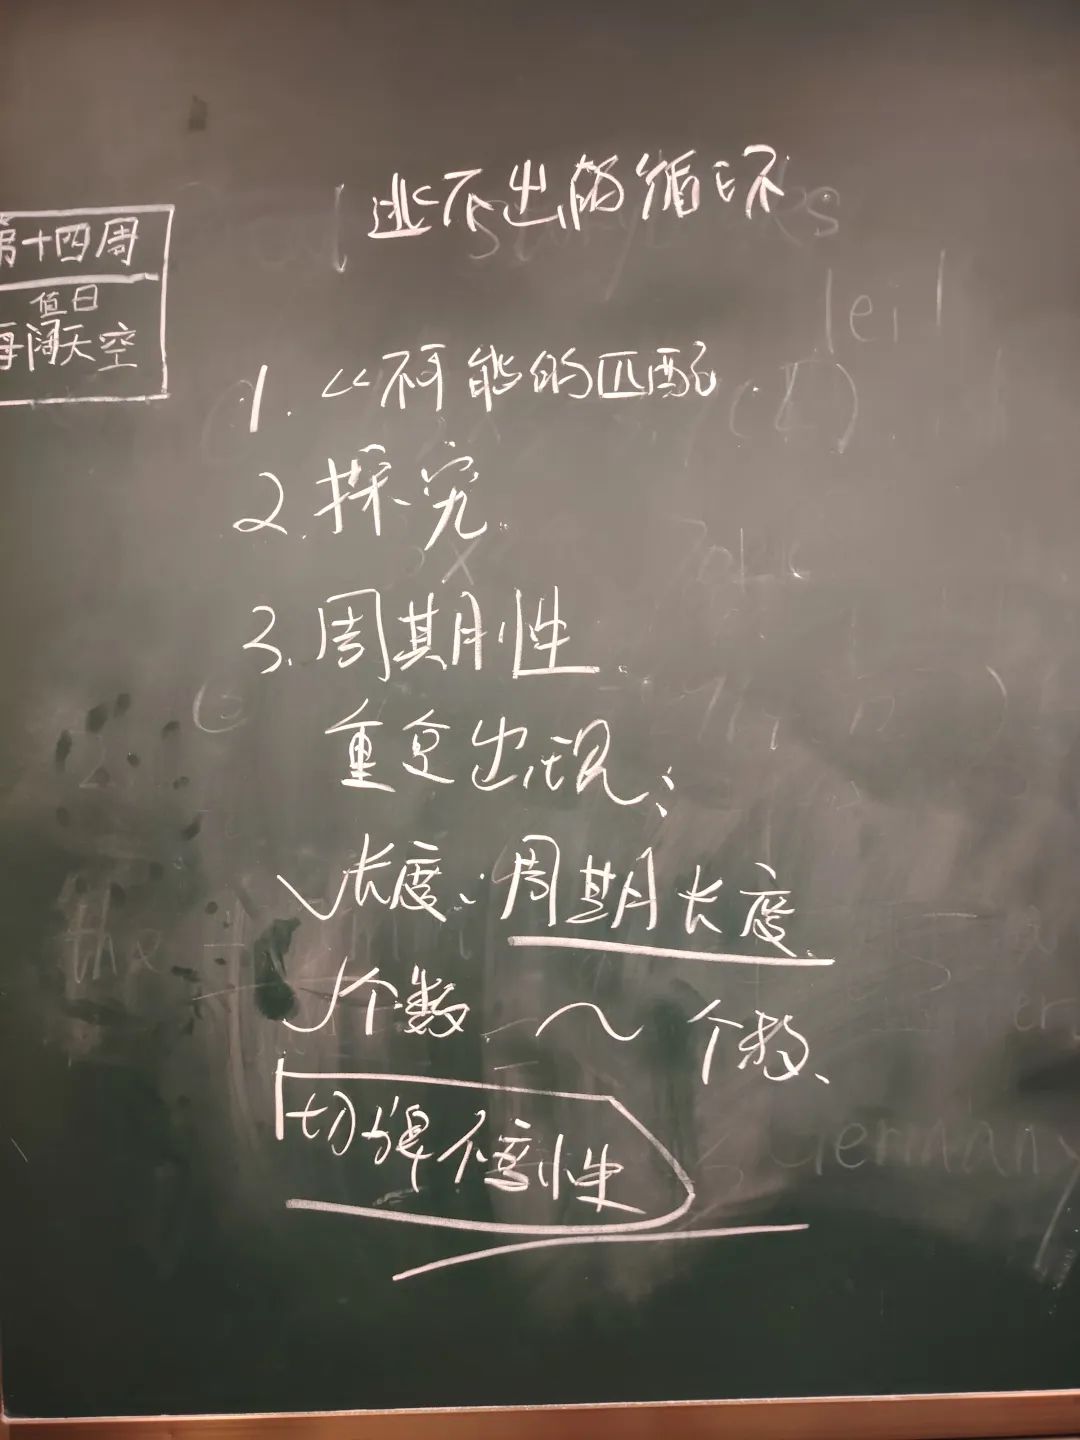 逃不出的循环
第十四周
值日
海阔天空
1. 不可能的匹配
2. 探究
3. 周期性
重复出现:
长度: 周期长度
个数 ~ 个数
切牌不变性
leil
Germany
the